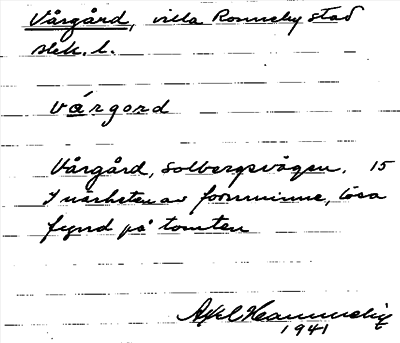 Vårgård, villa Ronneby stad
Blek. l.
vårgord
Vårgård, Solbergsvägen. 15
I närheten av fornminne, lösa
fynd på tomten
Axel
1941